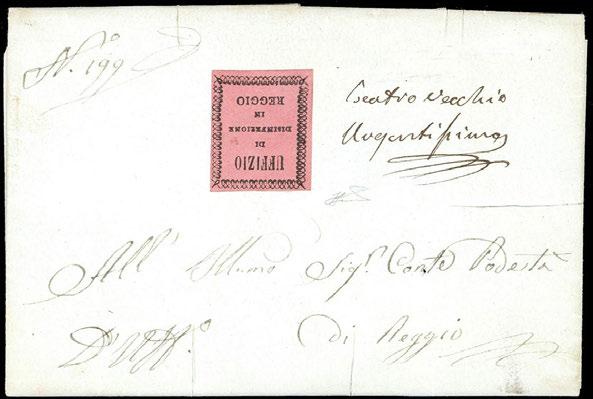 N.º 199
UFFIZIO
DI
DISINFEZIONE
IN
REGGIO
teatro vecchio
Urgentissima
All' Illumo Sigr. Conte Podestà
D'Uffo. di Reggio